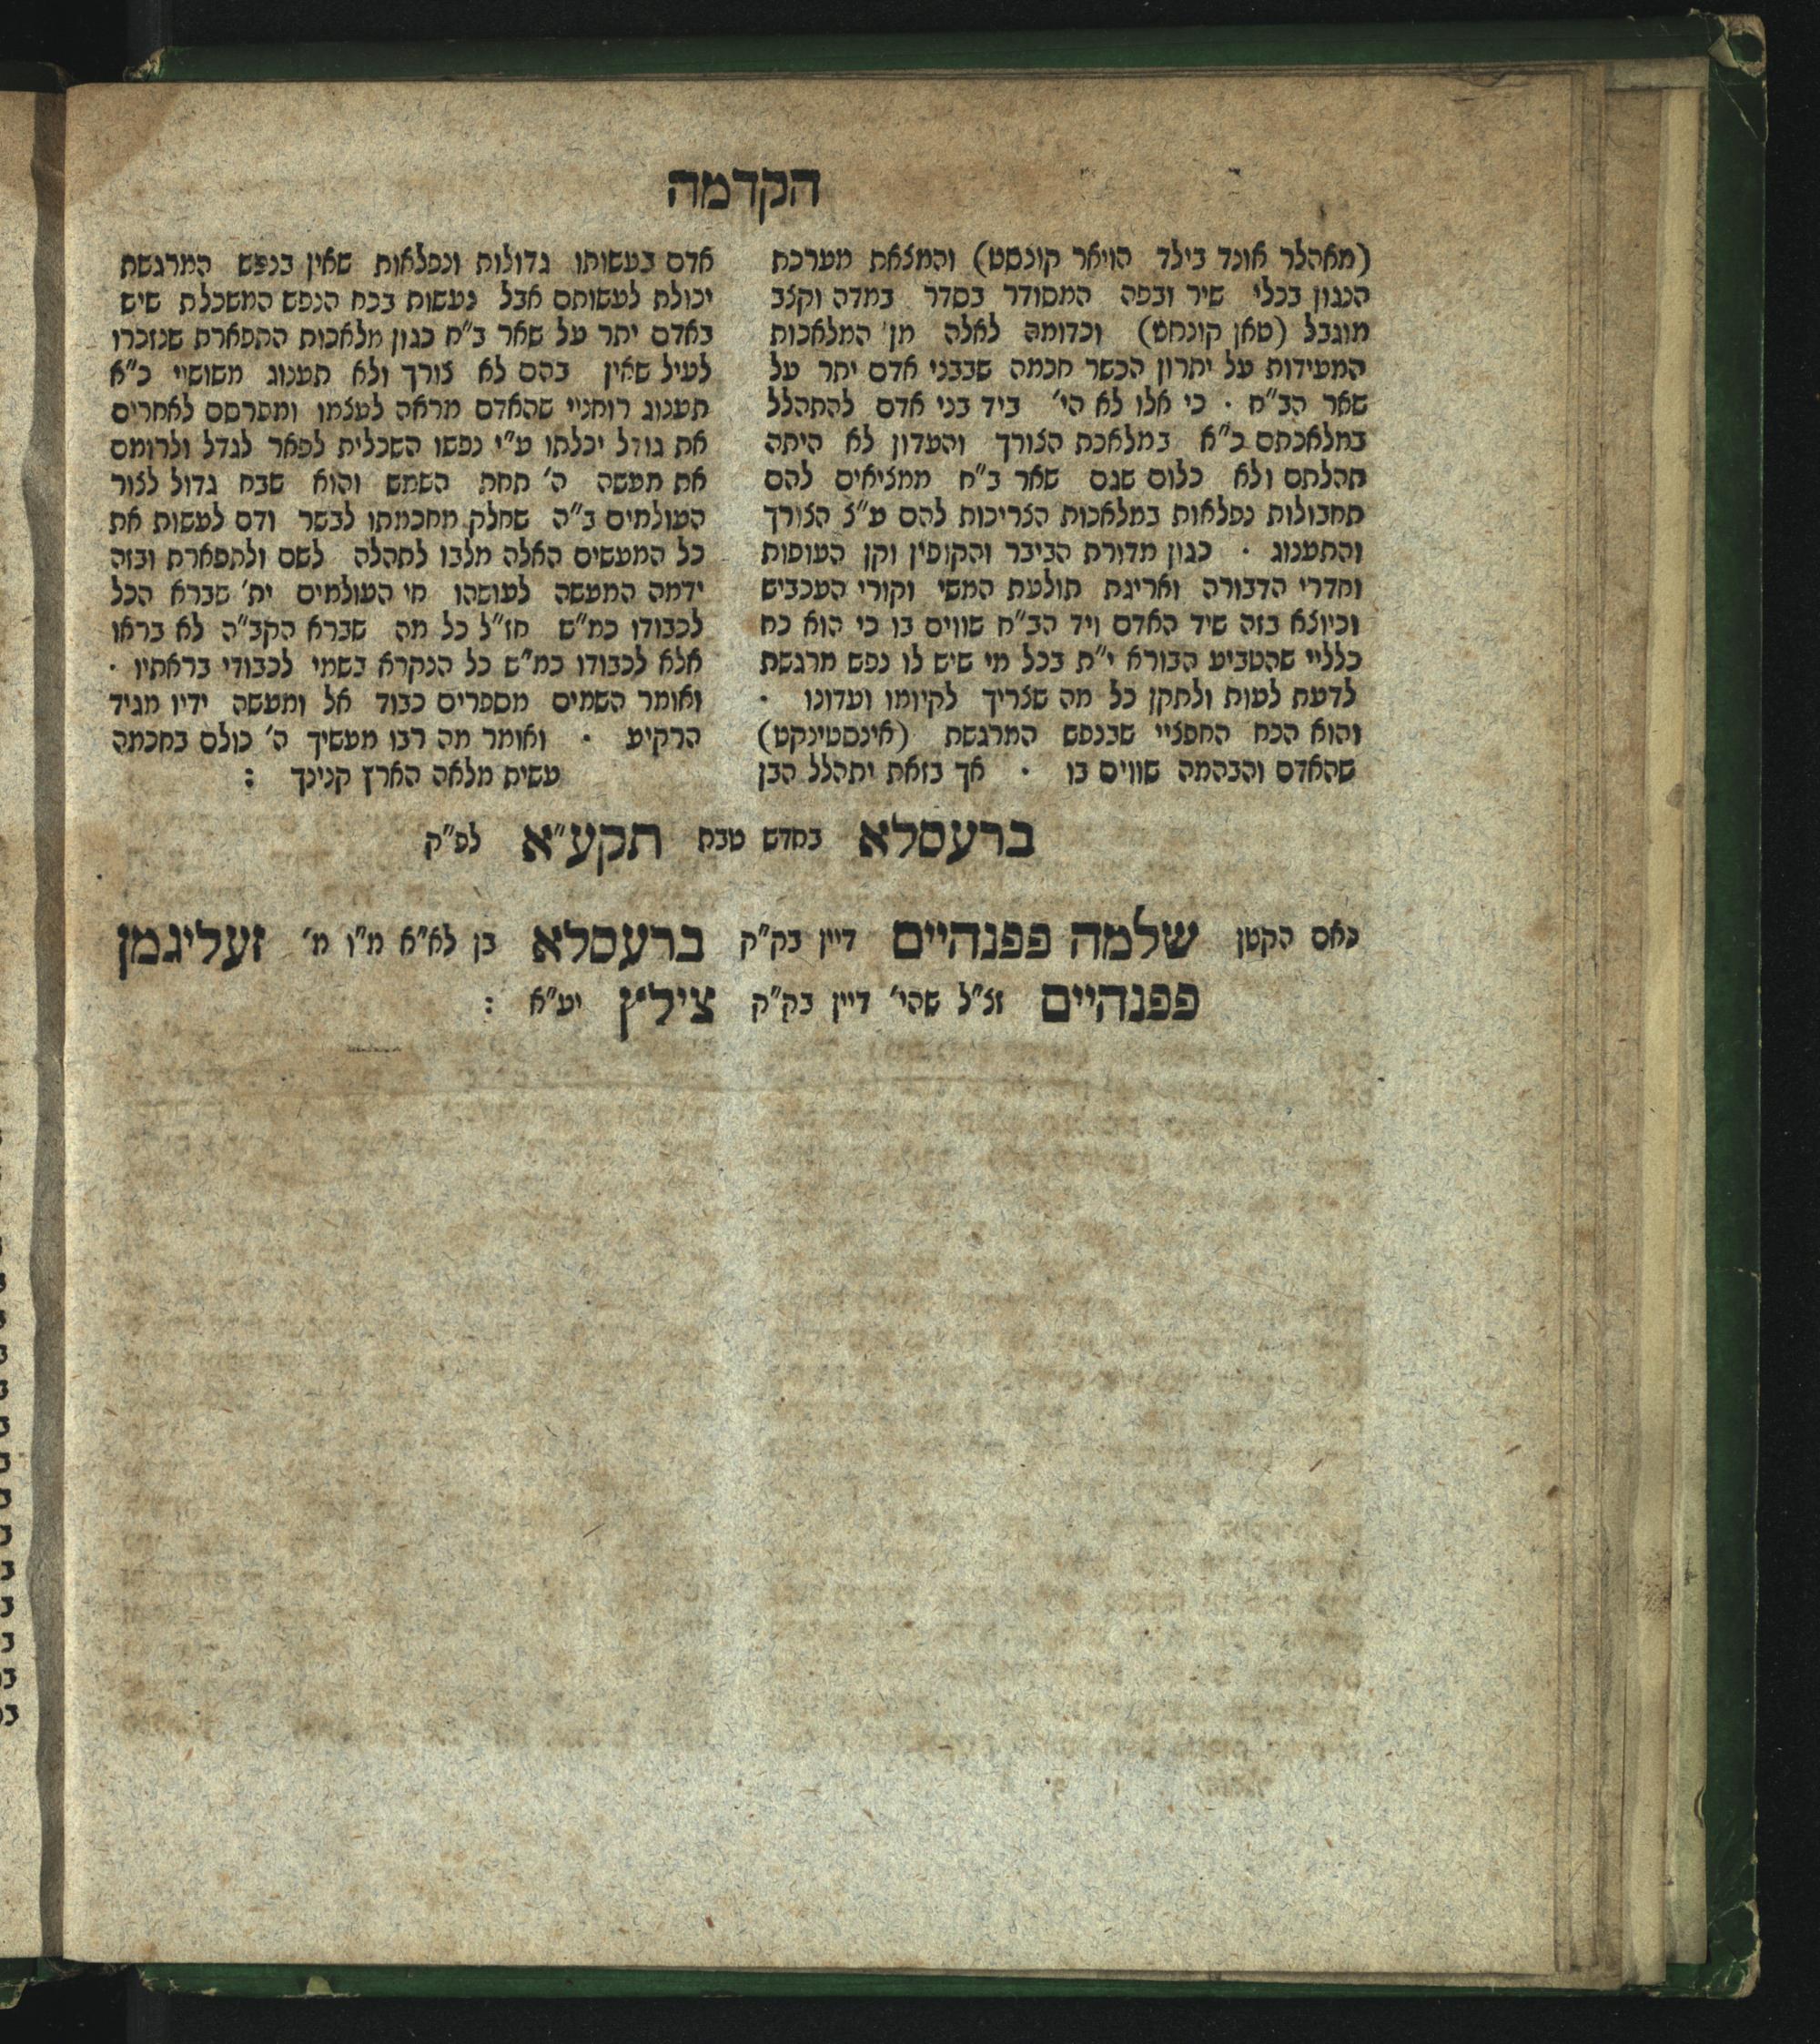 הקדמה
(מאהלר אונד בילד הויאר קונסט) והמצאת מערכת
הנגון בכלי שיר ובפה המסודר בסדר במדה וקצב
מוגבל (טאן קונחט) וכדומה לאלה מן המלאכות
המעידות על יתרון הכשר חכמה שבבני אדם יתר על
שאר הב"ח · כי אלו לא הי' ביד בני אדם להתהלל
במלאכתם כ"א במלאכת הצורך והעדון לא היתה
תהלתם ולא כלום שגם שאר ב"ח ממציאים להם
תחבולות נפלאות במלאכות הצריכות להם ע"צ הצורך
והתענוג · כגון מדורת הביבר והקופין וקן העופות
וחדרי הדבורה ואריגת תולעת המשי וקורי העכביש
וכיוצא בזה שיד האדם ויד הב"ח שווים בו כי הוא כח
כלליי שהטביע הבורא י"ת בכל מי שיש לו נפש מרגשת
לדעת לעות ולתקן כל מה שצריך לקיומו ועדונו ·
והוא הכח החפציי שבנפש המרגשת (אינסטינקט)
שהאדם והבהמה שווים בו · אך בזאת יתהלל הבן
אדם בעשותו גדולות ונפלאות שאין בנפש המרגשת
יכולת לעשותם אבל נעשות בכח הנפש המשכלת שיש
באדם יתר על שאר ב"ח כגון מלאכות התפארת שנזכרו
לעיל שאין בהם לא צורך ולא תענוג משושיי כ"א
תענוג רוחניי שהאדם מראה לעצמו ומפרסם לאחרים
את גודל יכלתו ע"י נפשו השכלית לפאר לגדל ולרומם
את מעשה ה' תחת השמש והוא שבח גדול לצור
העולמים ב"ה שחלק מחכמתו לבשר ודם לעשות את
כל המעשים האלה מלבו לתהלה לשם ולתפארת ובזה
ידמה המעשה לעושהו חי העולמים ית' שברא הכל
לכבודו כמ"ש חז"ל כל מה שברא הקב"ה לא בראו
אלא לכבודו כמ"ש כל הנקרא בשמי לכבודי בראתיו ·
ואומר השמים מספרים כבוד אל ומעשה ידיו מגיד
הרקיע · ואומר מה רבו מעשיך ה' כולם בחכמה
עשית מלאה הארץ קנינך :
ברעסלא בחדש טבת תקע"א לפ"ק
נאם הקטן שלמה פפנהיים דיין בק"ק ברעסלא בן לא"א מ"ו מ' זעליגמן
פפנהיים זצ"ל שהי' דיין בק"ק צילץ יע"א :